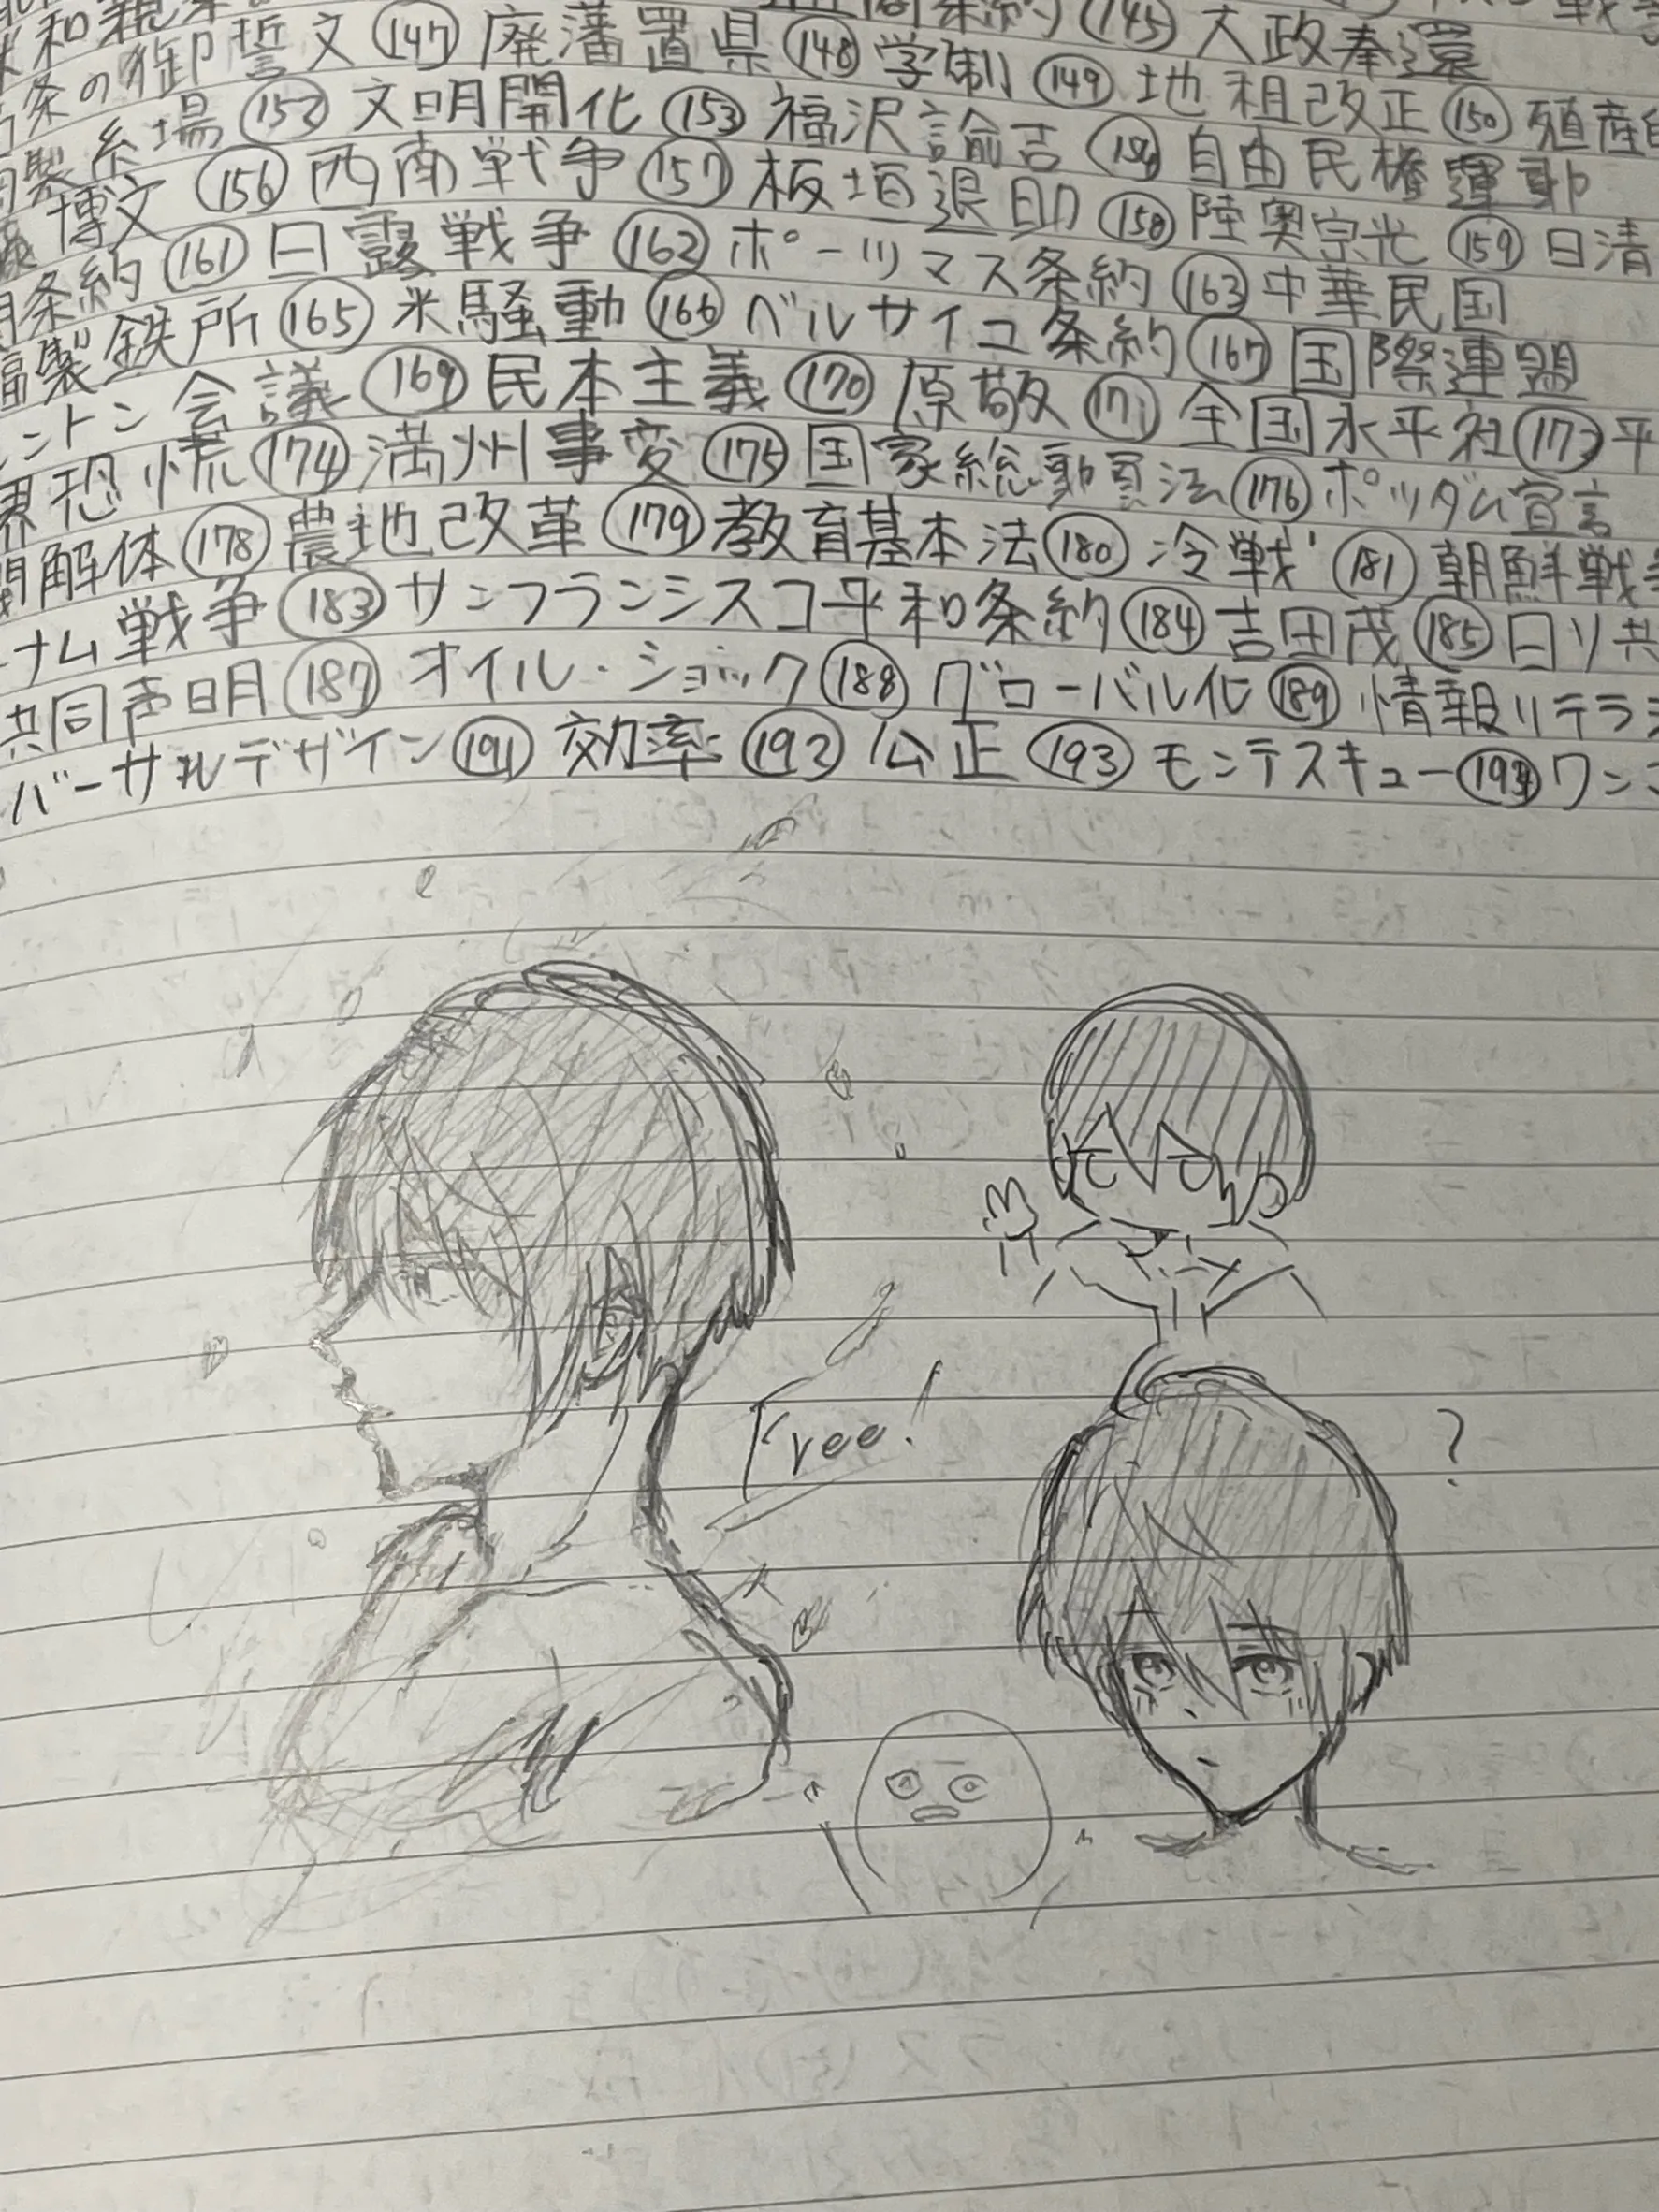 条約 145 大政奉還
条の御誓文 147 廃藩置県 148 学制 149 地租改正 150 殖産
製糸場 152 文明開化 153 福沢諭吉 154 自由民権運動
博文 156 西南戦争 157 板垣退助 158 陸奥宗光 159 日清
条約 161 日露戦争 162 ポーツマス条約 163 中華民国
製鉄所 165 米騒動 166 ベルサイユ条約 167 国際連盟
ントン会議 169 民本主義 170 原敬 171 全国水平社 173 平
界恐慌 174 満州事変 175 国家総動員法 176 ポツダム宣言
解体 178 農地改革 179 教育基本法 180 冷戦 181 朝鮮戦
ナム戦争 183 サンフランシスコ平和条約 184 吉田茂 185 日ソ共
共同声明 187 オイル・ショック 188 グローバル化 189 情報リテラシ
バーサルデザイン 191 効率 192 公正 193 モンテスキュー 194 ワン
Free!
?